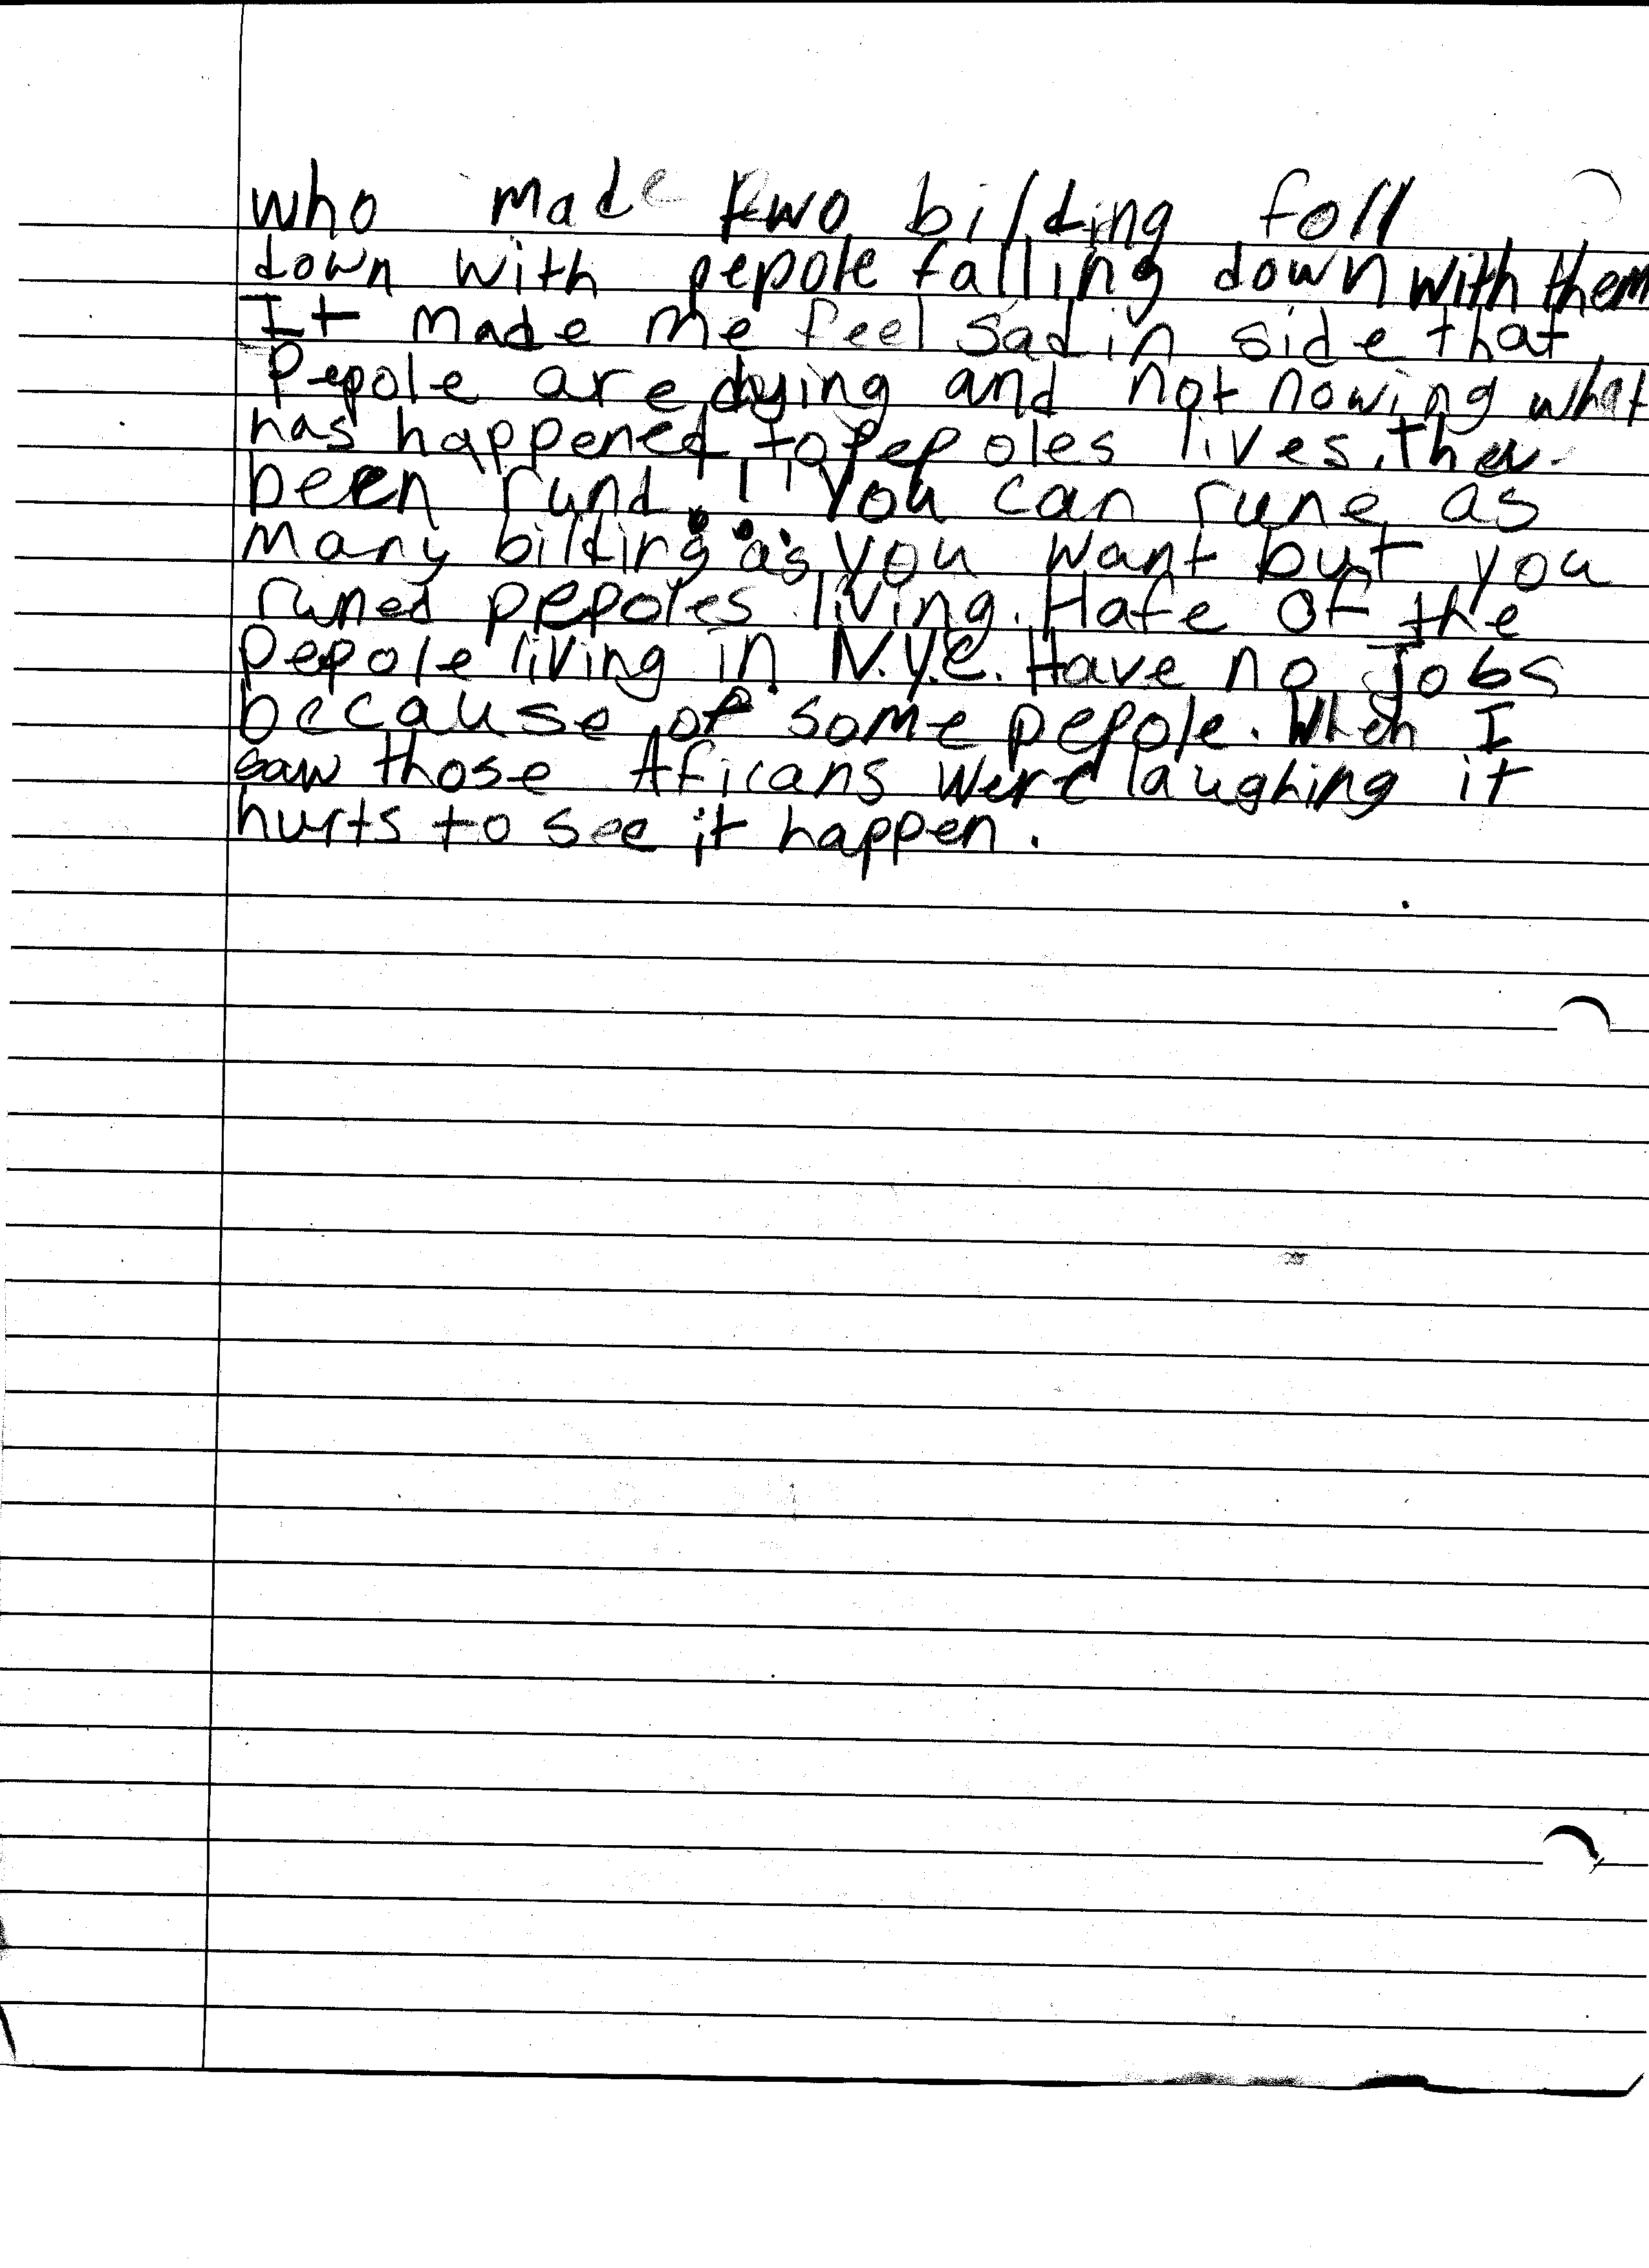 who made two bilding foll
down with pepole falling down with them
It made me feel sad in side that
Pepole are dying and not nowing what
has happened to pepoles lives. ther
been rund! "You can rune as
many bilding as you want but you
runed pepoles living. Hafe of the
pepole living in N.Y.C. Have no Jobs
because of some pepole. When I
saw those Aficans were laughing it
hurts to see it happen.